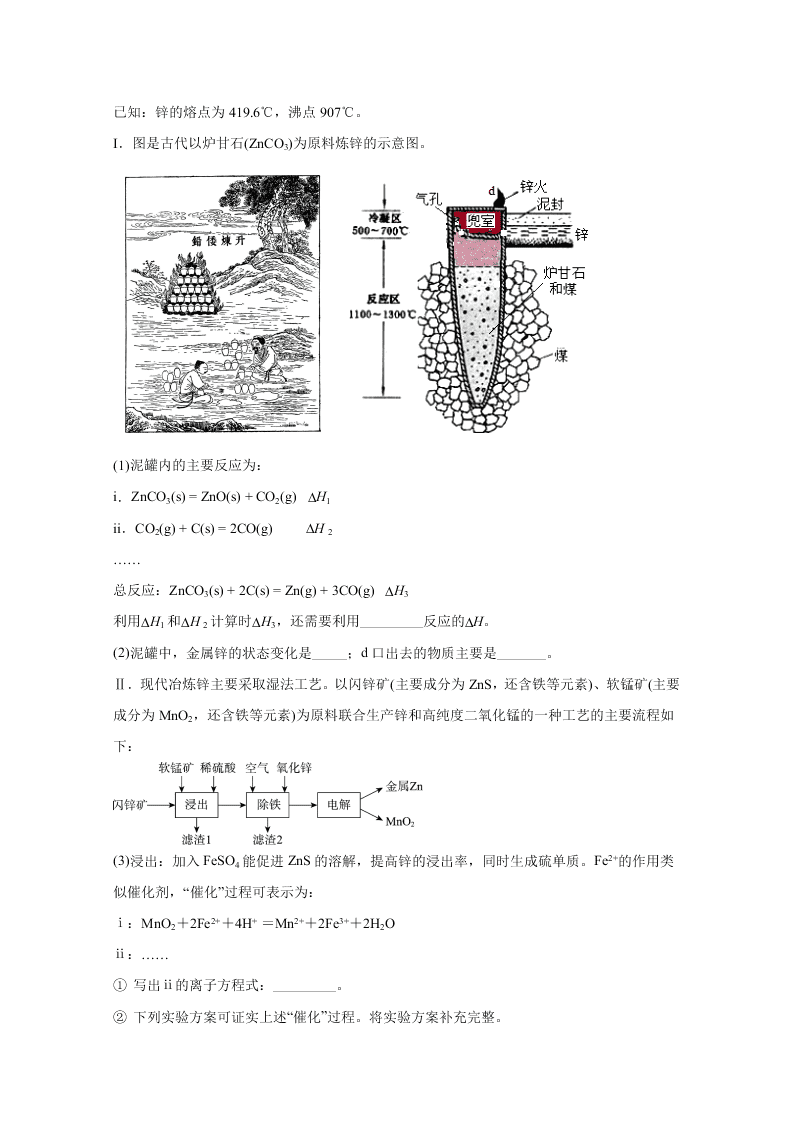 已知：锌的熔点为 419.6℃，沸点 907℃。
I．图是古代以炉甘石(ZnCO₃)为原料炼锌的示意图。
鉛倭煉升
冷凝区
500～700℃
反应区
1100～1300℃
气孔
d
锌火
泥封
兜室
锌
炉甘石
和煤
煤
(1)泥罐内的主要反应为：
i．ZnCO₃(s) = ZnO(s) + CO₂(g) ΔH₁
ii．CO₂(g) + C(s) = 2CO(g) ΔH ₂
……
总反应：ZnCO₃(s) + 2C(s) = Zn(g) + 3CO(g) ΔH₃
利用ΔH₁ 和ΔH ₂ 计算时ΔH₃，还需要利用_________反应的ΔH。
(2)泥罐中，金属锌的状态变化是_____；d 口出去的物质主要是_______。
Ⅱ．现代冶炼锌主要采取湿法工艺。以闪锌矿(主要成分为 ZnS，还含铁等元素)、软锰矿(主要
成分为 MnO₂，还含铁等元素)为原料联合生产锌和高纯度二氧化锰的一种工艺的主要流程如
下：
软锰矿 稀硫酸 空气 氧化锌
闪锌矿 浸出 除铁 电解 金属Zn
MnO₂
滤渣1 滤渣2
(3)浸出：加入 FeSO₄ 能促进 ZnS 的溶解，提高锌的浸出率，同时生成硫单质。Fe²⁺的作用类
似催化剂，“催化”过程可表示为：
ⅰ：MnO₂＋2Fe²⁺＋4H⁺ ＝Mn²⁺＋2Fe³⁺＋2H₂O
ⅱ：……
① 写出ⅱ的离子方程式：_________。
② 下列实验方案可证实上述“催化”过程。将实验方案补充完整。